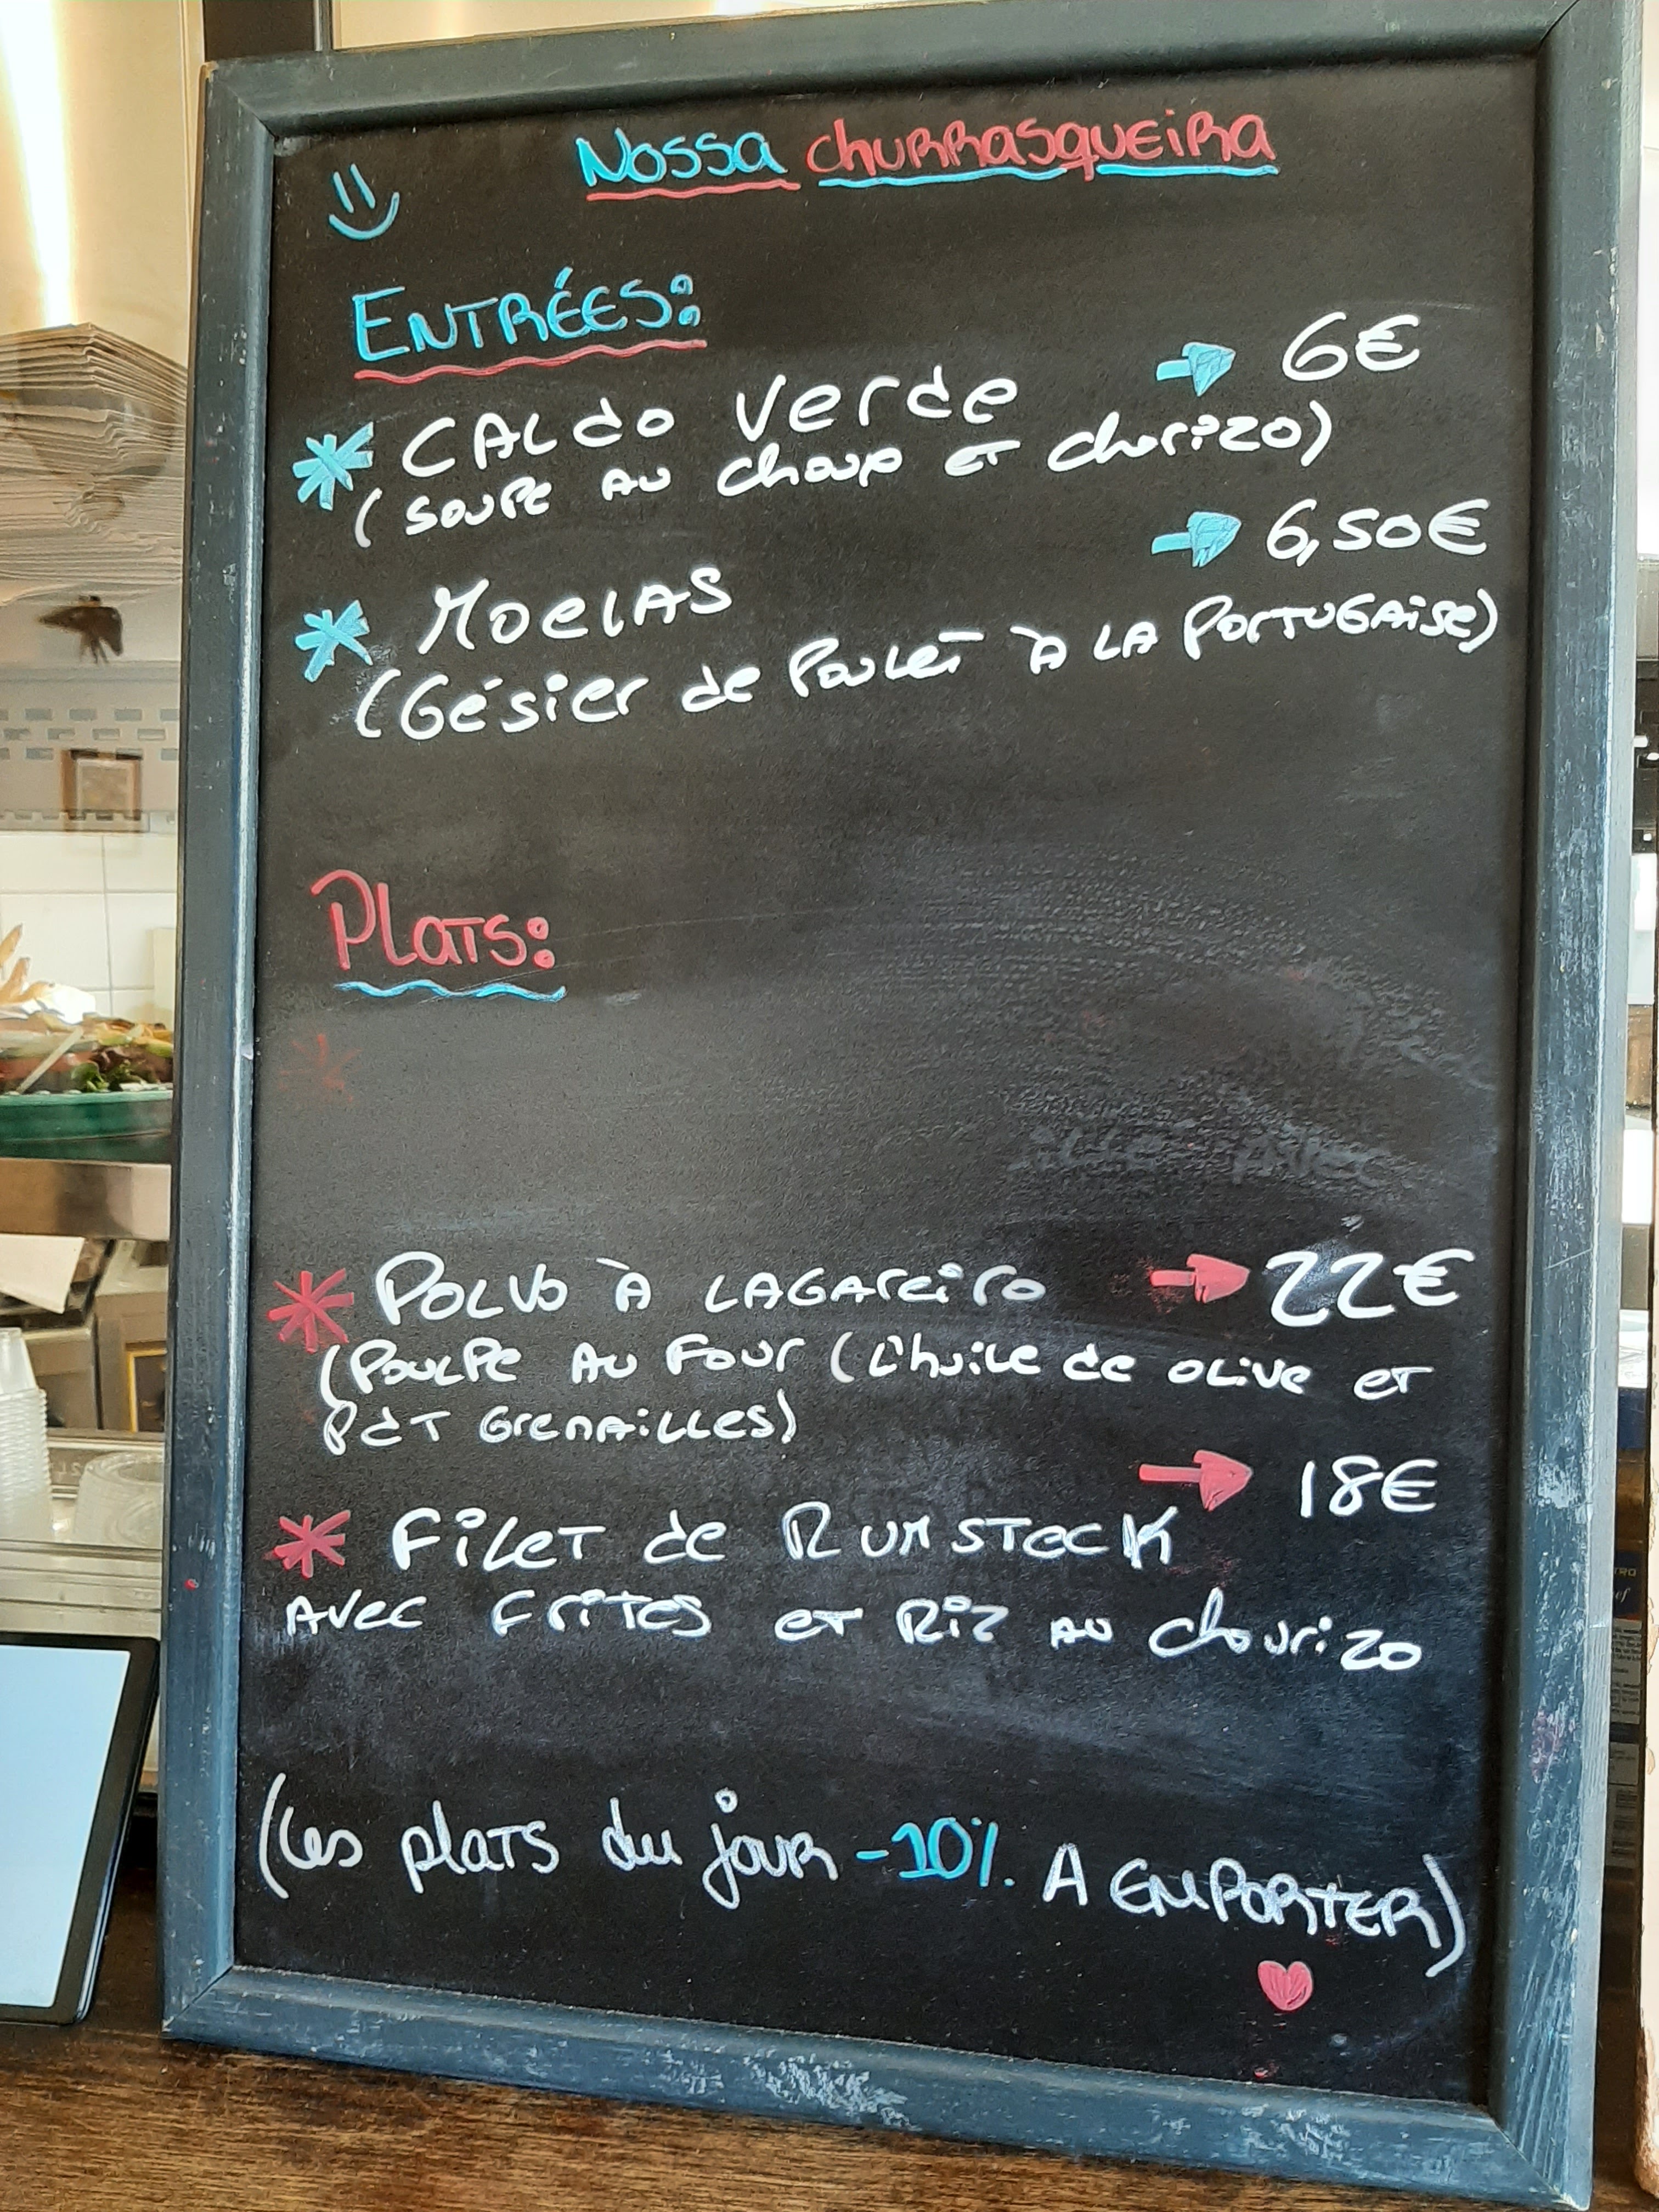 Nossa churrasqueira
Entrées:
Caldo Verde → 6€
(soupe au choux et chorizo)
→ 6,50€
Moelas
(Gésier de Poulet à la Portugaise)
Plats:
Polvo à Lagareiro → 22€
(Poulpe au four (L'huile de olive et
PdT Grenailles)
→ 18€
Filet de Rumsteck
avec frites et Riz au chourizo
(Les plats du jour -10% A EMPORTER)